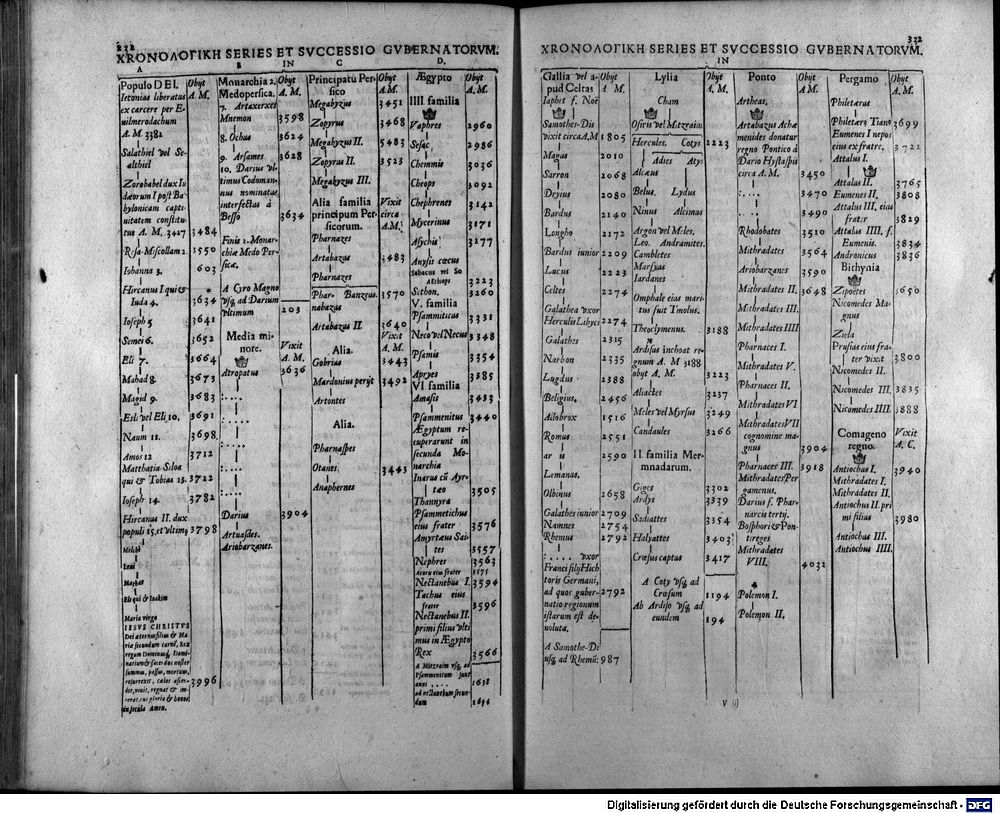 232
ΧΡΟΝΟΛΟΓΙΚΗ SERIES ET SVCCESSIO GVBERNATORVM.
A B IN C D.
Populo DEI.
Obyt
A. M.
Ieconias liberatus
ex carcere per E-
uilmerodachum
A. M. 3382
Salathiel vel Se-
althiel
Zorobabel dux Iu
dæorum I post Ba-
bylonicam capti-
uitatem constitu-
tus A. M. 3427 3484
Resa-Miscollam 2 3550
Iohanna 3. 603
Hircanus I. qui &
Iuda 4. 3634
Ioseph 5 3641
Semei 6. 3652
Eli 7. 3664
Mahad 8. 3673
Magid 9. 3683
Esli vel Eli 10. 3691
Naum 11. 3698
Amos 12 3712
Matthatia-Siloa
qui & Tobias 13. 3722
Ioseph 14. 3782
Hircanus II. dux
populi 15. et vltimus 3798
Melchi
Leui
Mathat
Eli qui & Ioakim
Maria virgo
IESVS CHRISTVS
Dei æternus filius & Ma
riæ secundum carnē, Rex
regum Dominus, Domi-
nantium & sacerdos noster
summus, passus, mortuus,
resurrexit, cælos ascen-
dit, viuit, regnat &
cui gloria & honos
in secula Amen. 3996
Monarchia 2.
Medopersica.
Obyt
A. M.
7. Artaxerxes
Mnemon 3598
8. Ochus 3624
9. Arsames 3628
10. Darius vl
timus Codoman-
nus nominatus,
interfectus à
Besso 3634
Finis 2. Monar-
chiæ Medo Per-
sicæ.
A Cyro Magno
vsq, ad Darium
vltimum 203
Media mi-
nore.
Vixit
A. M.
Atropatus 3636
: . . .
: . . .
: . . .
: . . .
: . . .
Darius 3904
Artuasdes.
Ariobarzanes.
Principatu Per-
sico
Obyt
A. M.
Megabyzus 3451
Zopyrus 3468
Megabyzus II. 5483
Zopyrus II. 3523
Megabyzus III.
Alia familia
principum Per-
sicorum.
Vixit
circa
A. M.
Pharnazes
Artabazus 3483
Pharnazes
Phar- Banzeus. 3570
nabazus
Artabazus II. 3640
Alia.
Vixit
A. M.
Gobrias 3443
Mardonius perijt 3492
Artontes
Alia.
Pharnaspes
Otanes 3443
Anaphernes
Ægypto
Obyt
A. M.
IIII familia
Vaphres 2960
Sesac 2986
Chemmis 3036
Cheops 3092
Chephrenes 3142
Mycerinus 3171
Asychis 3177
Anysis cæcus
Sabacus vel So
Æthiops 3223
Sethon. 3260
V. familia
Psammiticus 3331
Neco vel Necus 3348
Psamis 3354
Apryes 3385
VI familia
Amasis 3433
Psammenitus 3440
Ægyptum re-
cuperarunt in
secunda Mo-
narchia
Inarus cū Ayr-
tæo 3505
Thannyra
Psammetichus
eius frater 3576
Amyrtæus Sai-
tes 3557
Nephres 3563
Acoru eius frater 3575
Nectanebus I. 3594
Tachus eius
frater 3596
Nectanebus II.
primi filius vlti
mus in Ægypto
Rex 3566
A Mitzraim vsq, ad
Psammenitum sunt
anni . . . . 1638
ad nectanebum secun-
dum 1694
332
ΧΡΟΝΟΛΟΓΙΚΗ SERIES ET SVCCESSIO GVBERNATORVM.
IN
Gallia vel a-
pud Celtas
Obyt
A M.
Iaphet f. Noë
Samothes-Dis
vixit circa A, M 1805
Magus 2010
Sarron 2068
Dryius 2080
Bardus 2140
Longho 2172
Bardus iunior 2209
Lucus 2223
Celtes 2274
Galathea vxor
Herculis Libyci 2274
Galathes 2315
Narbon 2335
Lugdus 2388
Beligius. 2456
Allobrox 1516
Romus 2551
2590
Lemanus.
Olbinus 2658
Galathes iunior 2709
Namnes 2754
Rhemus 2792
: . . . . vxor
Franci filij Hect
toris Germani,
ad quos guber-
natio regionum
istarum est de-
uoluta. 2792
A Samothe-Di
usq, ad Rhemū: 987
Lylia
Obyt
A. M.
Cham
Osiris vel Mitzraim
Hercules. Cotys 2223
Adies Atys
Alcæus
Belus. Lydus
Ninus Alcimus
Argon vel Meles.
Leo. Andramites.
Cambletes
Marsyas
Iardanes
Omphale eius mari
tus fuit Tmolus.
Theoclymenus. 3188
Ardisus inchoat re
gnum A. M 3188
obyt A. M. 3223
Aliactes 3237
Meles vel Myrsus 3249
Candaules 3266
II. familia Mer-
mnadarum.
Giges 3302
Ardys 3339
Sadiattes 3354
Halyattes 3403
Crœsus captus 3417
A Coty vsq, ad
Crœsum 1194
Ab Ardiso vsq, ad
eundem 194
Ponto
Obyt
A. M.
Artheas.
Artabazus Achæ
menides donatur
regno Pontico à
Dario Hystaspis
circa A. M. 3450
: . . . 3470
. . . 3490
Rhodobates 3510
Mithradates 3564
Ariobarzanes 3590
Mithradates II. 3648
Mithradates III.
Mithradates IIII
Pharnaces I.
Mithradates V.
Pharnaces II.
Mithradates VI
Mithradates VII
cognomine ma-
gnus 3904
Pharnaces III. 3918
Mithradates Per
gamenus.
Darius f. Phar-
narcis tertij.
Bosphori & Pon-
tireges
Mithradates
VIII. 4032
Polemon I.
Polemon II.
Pergamo
Obyt
A. M.
Philetærus
Philetærꝰ Tianꝰ 3699
Eumenes I nepos
eius ex fratre. 3722
Attalus I.
Attalus II. 3765
Eumenes II. 3808
Attalus III, eius
frater 3829
Attalus IIII, f.
Eumenis. 3834
Andronicus 3836
Bithynia
Zipoetes 3650
Nicomedes Ma-
gnus
Ziela
Prusias eius fra-
ter vixit 3800
Nicomedes II.
Nicomedes III. 3835
Nicomedes IIII. 3888
Comageno
regno.
Vixit
A. C.
Antiochus I. 3940
Mithradates I.
Mithradates II.
Antiochus II. pri
mi filius 3980
Antiochus III.
Antiochus IIII.
V iij
Digitalisierung gefördert durch die Deutsche Forschungsgemeinschaft - DFG